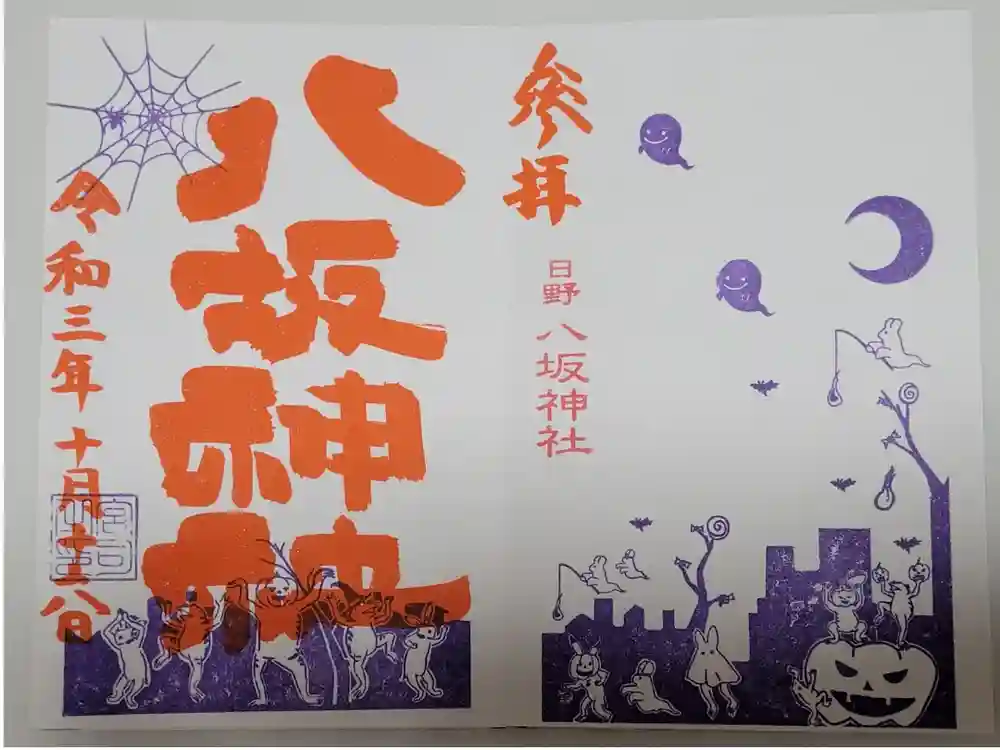 参拝
日野 八坂神社
八坂神社
令和三年十月十六日